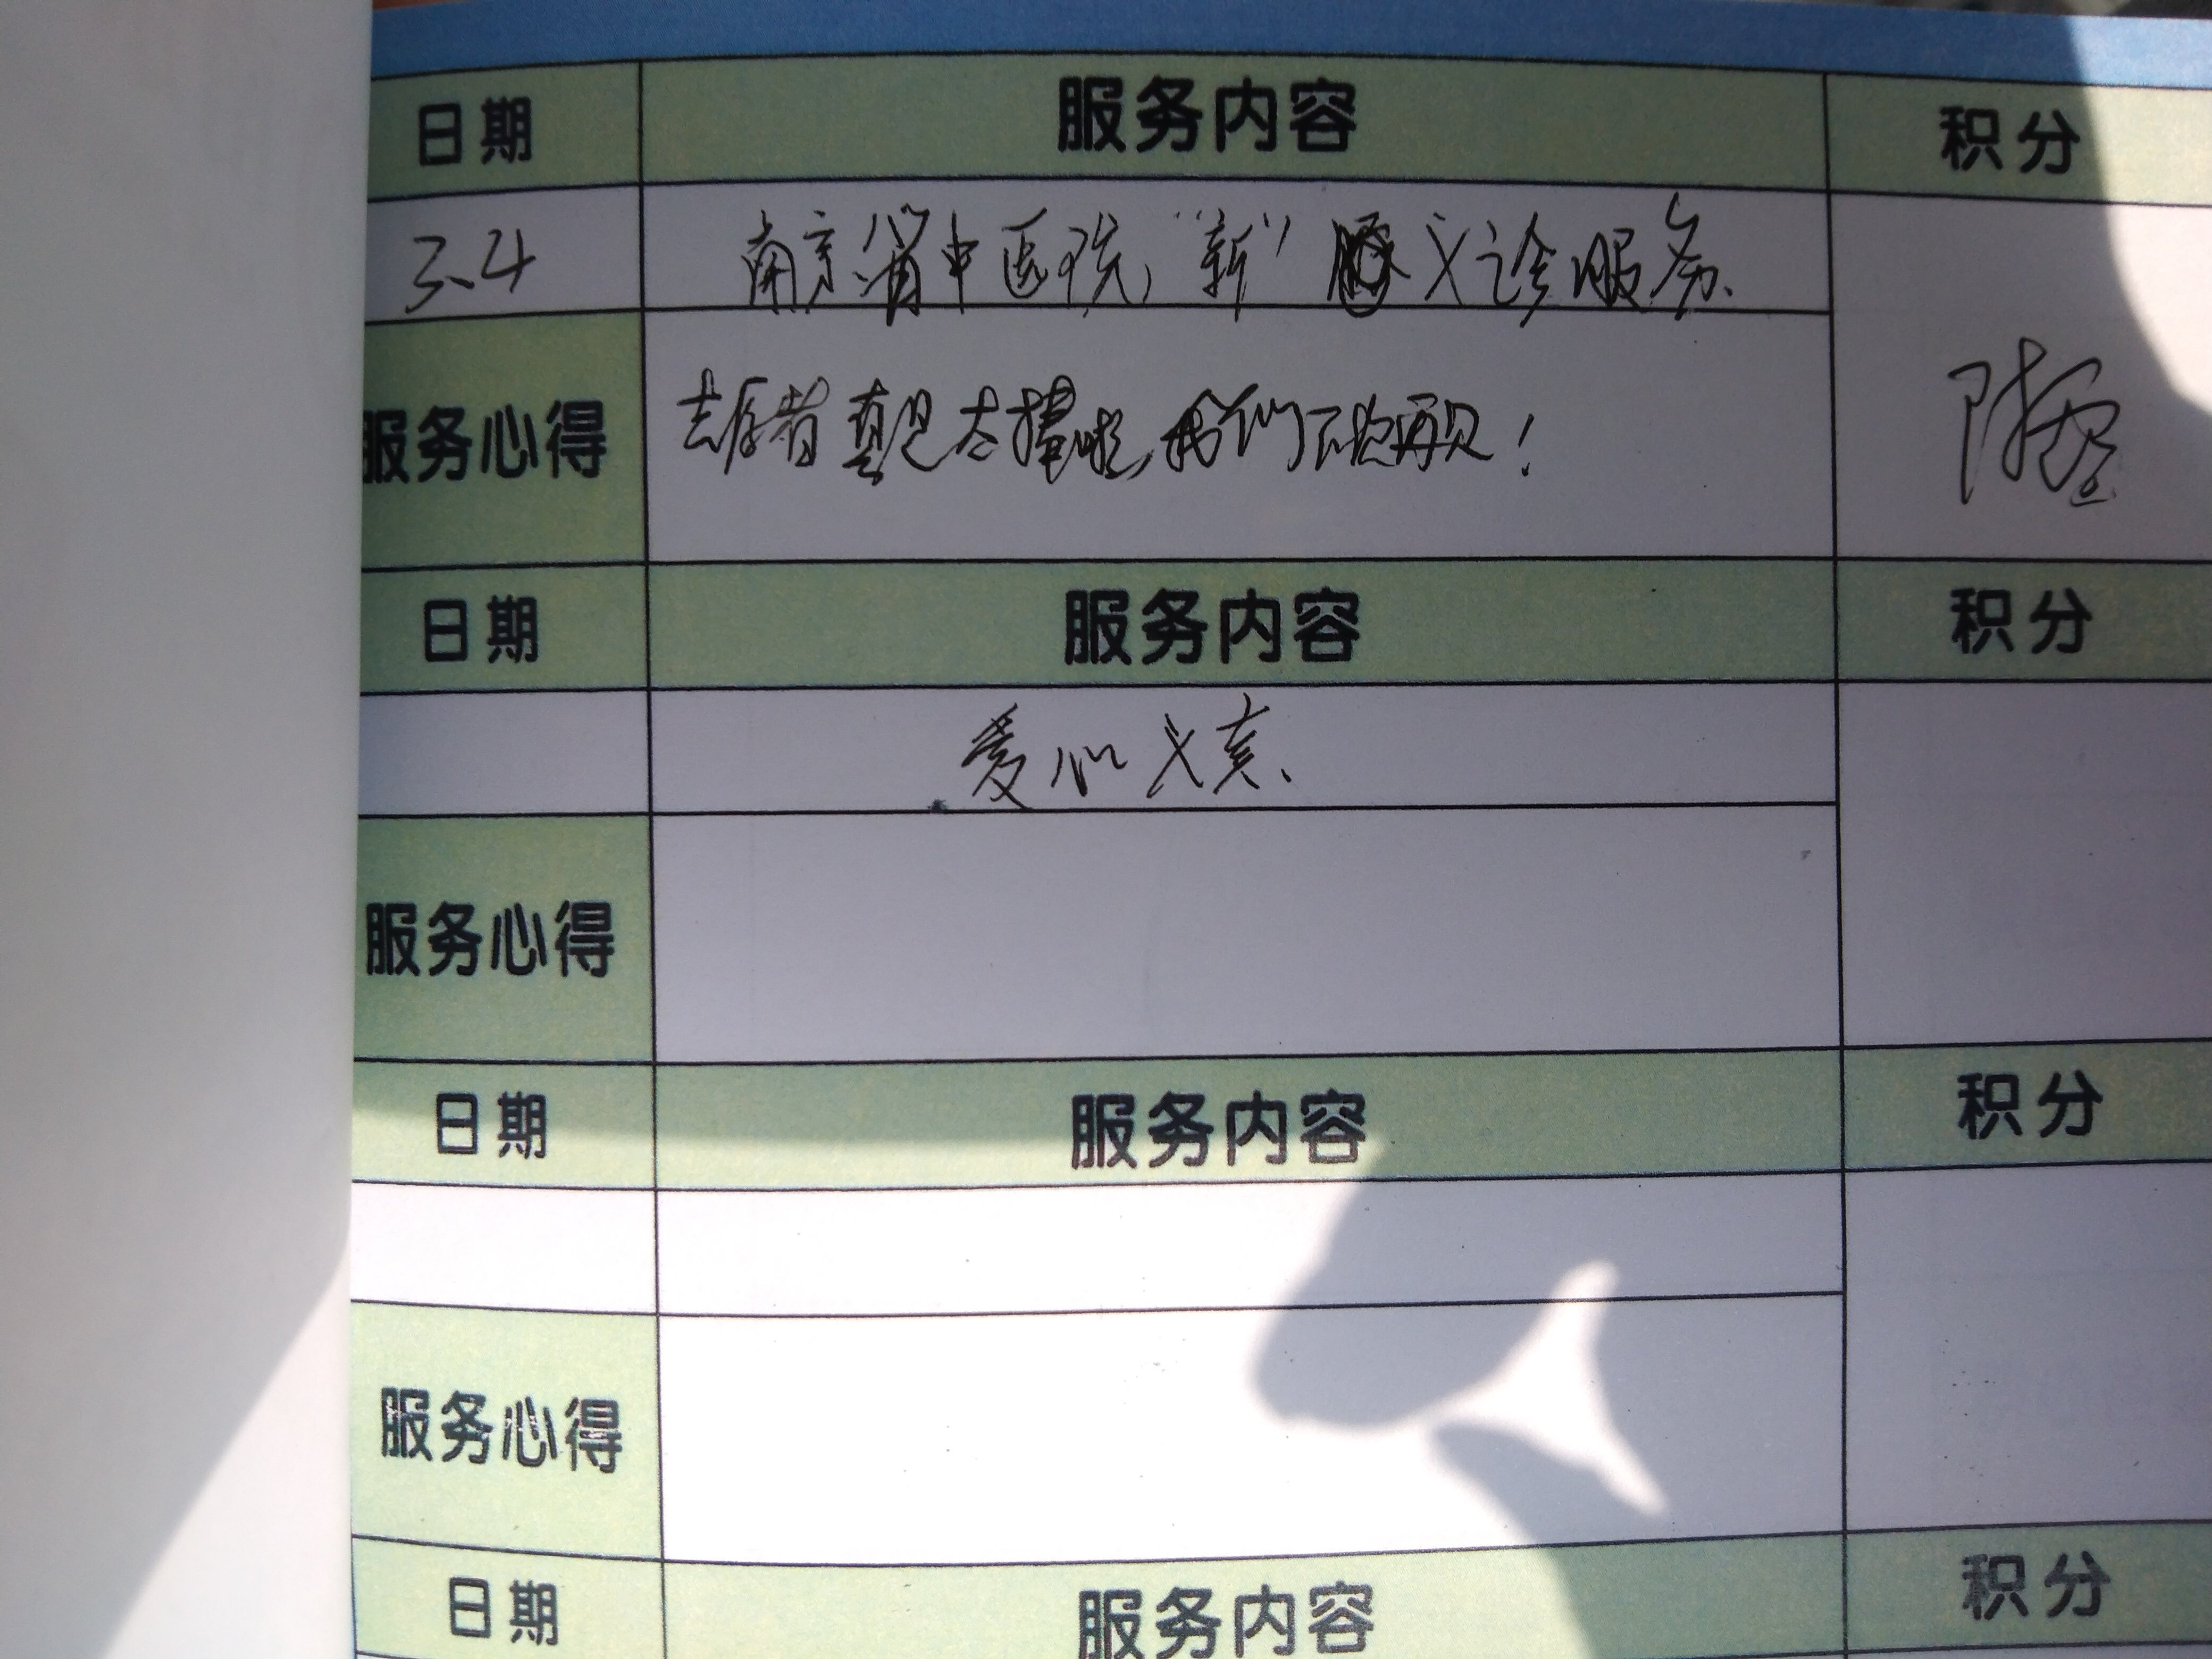 日期 服务内容 积分
3.4 南京省中医院,“新” 义诊服务、
服务心得 志愿者真是太棒啦,我们下次再见!
日期 服务内容 积分
爱心义卖、
服务心得
日期 服务内容 积分
服务心得
日期 服务内容 积分